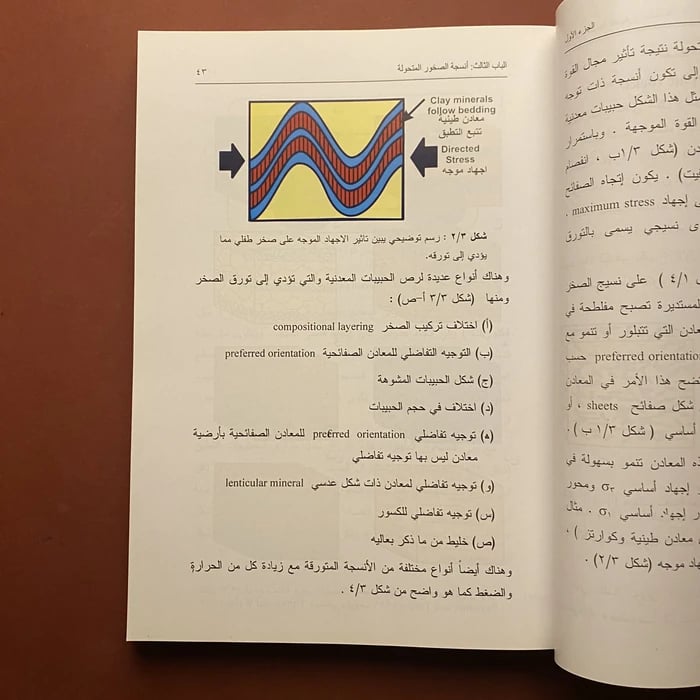 الباب الثالث: أنسجة الصخور المتحولة
٤٣
Clay minerals
follow bedding
معادن طينية
تتبع التطبق
Directed
Stress
اجهاد موجه
شكل ٢/٣ : رسم توضيحي يبين تاثير الاجهاد الموجه على صخر طفلي مما
يؤدي إلى تورقه.
وهناك أنواع عديدة لرص الحبيبات المعدنية والتي تؤدي إلى تورق الصخر
ومنها (شكل ٣/٣ أ-ص) :
(أ) اختلاف تركيب الصخر compositional layering
(ب) التوجيه التفاضلي للمعادن الصفائحية preferred orientation
(ج) شكل الحبيبات المشوهة
(د) اختلاف في حجم الحبيبات
(ه) توجيه تفاضلي preferred orientation للمعادن الصفائحية بأرضية
معادن ليس بها توجيه تفاضلي
(و) توجيه تفاضلي لمعادن ذات شكل عدسي lenticular mineral
(س) توجيه تفاضلي للكسور
(ص) خليط من ما ذكر بعاليه
وهناك أيضاً أنواع مختلفة من الأنسجة المتورقة مع زيادة كل من الحرارة
والضغط كما هو واضح من شكل ٤/٣ .
الجزء الأول
تحولة نتيجة تأثير مجال القوة
إلى تكون أنسجة ذات توجه
مثل هذا الشكل حبيبات معدنية
القوة الموجهة . وباستمرار
دن (شكل ١/٣ب ، انفصام
يت) . يكون إتجاه الصفائح
ى إجهاد maximum stress ،
ى نسيجي يسمى بالتورق
ل ٤/١ ) على نسيج الصخر
لمستديرة تصبح مفلطحة في
عادن التي تتبلور أو تنمو مع
preferred orientation حسب
تضح هذا الأمر في المعادن
شكل صفائح sheets ، أو
أساسي ( شكل ١/٣ ب ) .
ذه المعادن تنمو بسهولة في
إجهاد أساسي σ٣ ومحور
ر إجهاد أساسي σ١ . مثال
معادن طينية وكوارتز ) .
هاد موجه (شكل ٢/٣) .